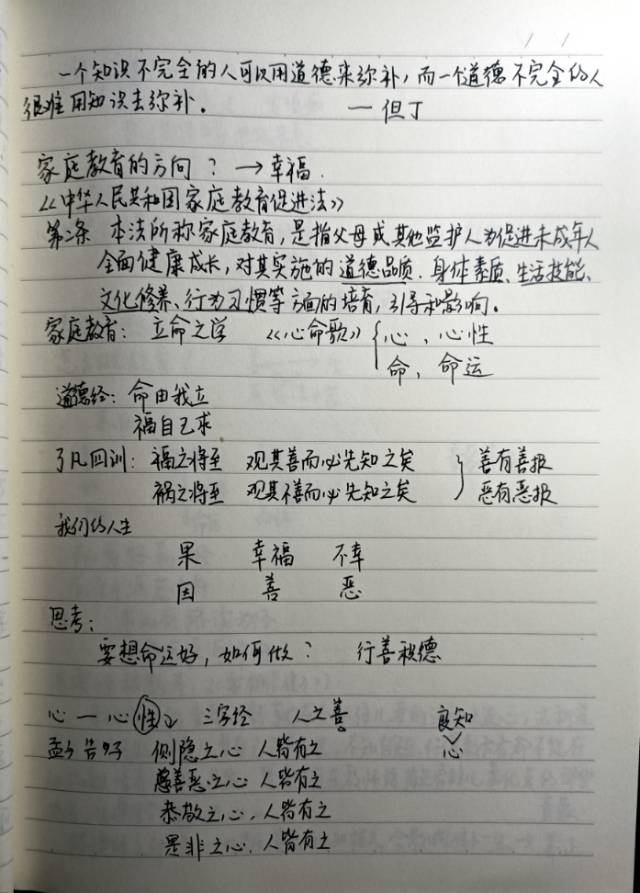 一个知识不完全的人可以用道德来弥补，而一个道德不完全的人
很难用知识去弥补。 —但丁
家庭教育的方向？→幸福.
《中华人民共和国家庭教育促进法》
第二条 本法所称家庭教育，是指父母或其他监护人为促进未成年人
全面健康成长，对其实施的道德品质、身体素质、生活技能、
文化修养、行为习惯等方面的培育，引导和影响。
家庭教育：立命之学 《心命歌》{心，心性
命，命运
道德经：命由我立
福自己求
了凡四训：福之将至 观其善而必先知之矣 } 善有善报
祸之将至 观其不善而必先知之矣 恶有恶报
我们的人生
果 幸福 不幸
因 善 恶
思考：
要想命运好，如何做？ 行善积德
心—心性 三字经 人之善。 良知
孟子告子 恻隐之心 人皆有之 心
善恶之心 人皆有之
恭敬之心，人皆有之
是非之心，人皆有之